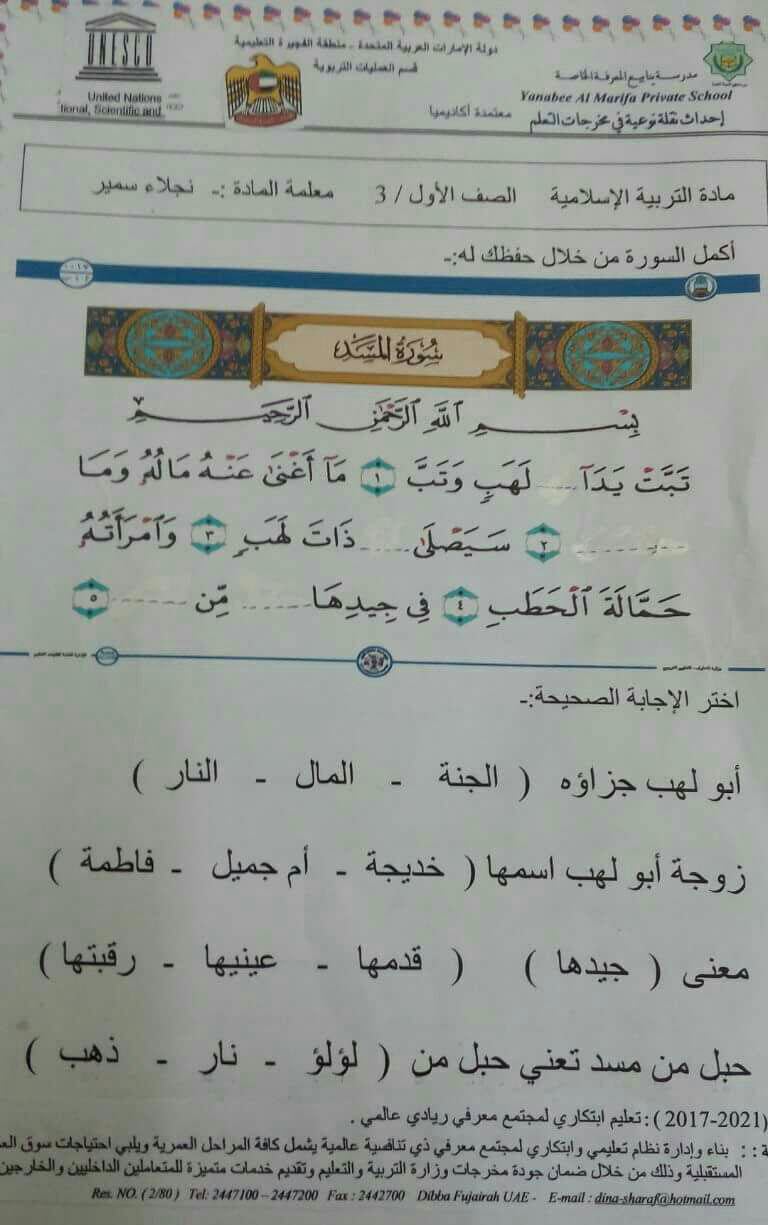 UNESCO
United Nations
tional, Scientific and
دولة الإمارات العربية المتحدة - منطقة الفجيرة التعليمية
قسم العمليات التربوية
معتمدة أكاديميا
مدرسة ينابيع المعرفة الخاصة
Yanabee Al Marifa Private School
إحداث نقلة نوعية في مخرجات التعلم
مادة التربية الإسلامية الصف الأول / 3 معلمة المادة :- نجلاء سمير
أكمل السورة من خلال حفظك له:-
سُورَةُ المَسَد
بِسْمِ ٱللَّهِ ٱلرَّحْمَٰنِ ٱلرَّحِيمِ
تَبَّتْ يَدَآ ..... لَهَبٍ وَتَبَّ ١ مَآ أَغْنَىٰ عَنْهُ مَالُهُۥ وَمَا
..... ٢ سَيَصْلَىٰ ..... ذَاتَ لَهَبٍ ٣ وَٱمْرَأَتُهُۥ
حَمَّالَةَ ٱلْحَطَبِ ٤ فِى جِيدِهَا ..... مِّن ..... ٥
اختر الإجابة الصحيحة:-
أبو لهب جزاؤه ( الجنة - المال - النار )
زوجة أبو لهب اسمها ( خديجة - أم جميل - فاطمة )
معنى ( جيدها ) ( قدمها - عينيها - رقبتها )
حبل من مسد تعني حبل من ( لؤلؤ - نار - ذهب )
(2017-2021) : تعليم ابتكاري لمجتمع معرفي ريادي عالمي .
ة : : بناء وإدارة نظام تعليمي وابتكاري لمجتمع معرفي ذي تنافسية عالمية يشمل كافة المراحل العمرية ويلبي احتياجات سوق الع
المستقبلية وذلك من خلال ضمان جودة مخرجات وزارة التربية والتعليم وتقديم خدمات متميزة للمتعاملين الداخليين والخارجين
Res. NO. ( 2/80 ) Tel: 2447100 – 2447200 Fax : 2442700 Dibba Fujairah UAE - E-mail : dina-sharaf@hotmail.com